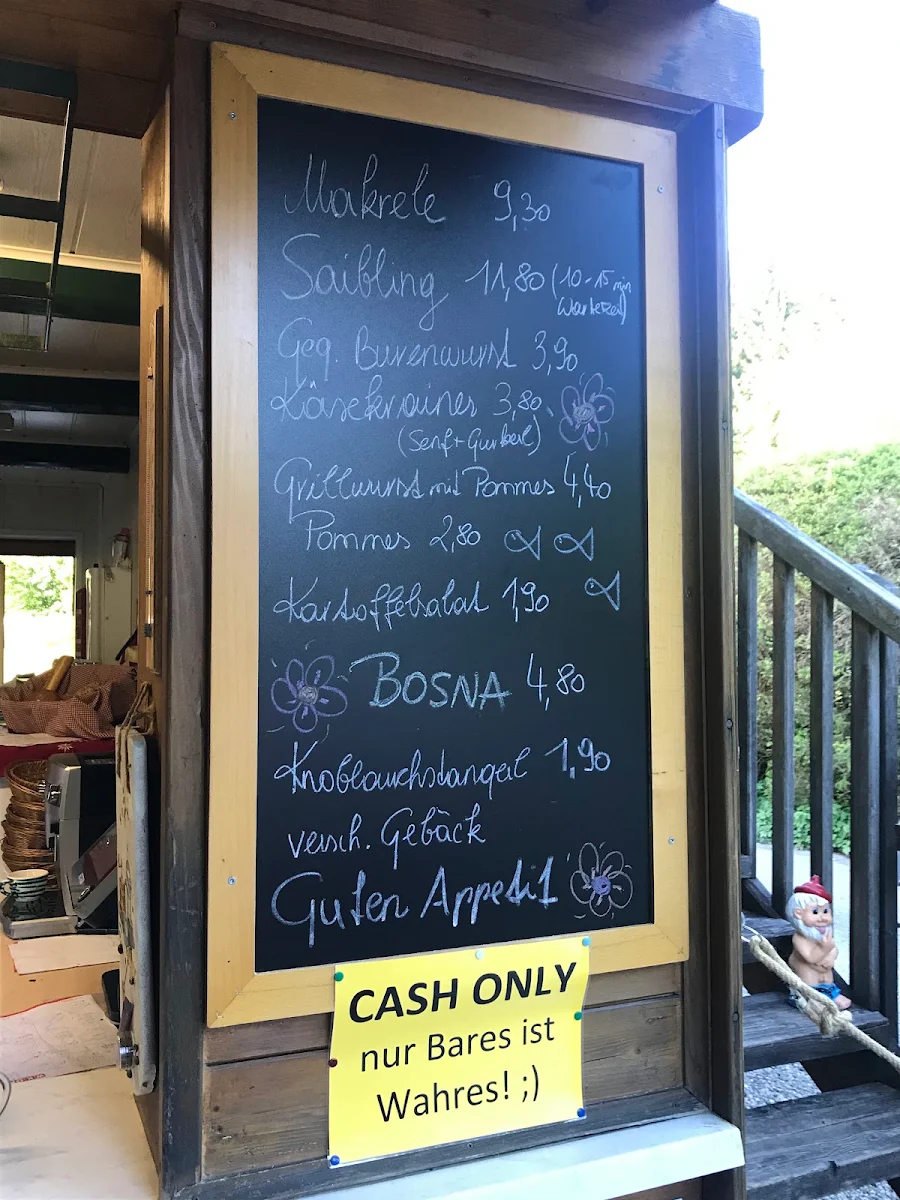 Makrele 9,30
Saibling 11,80 (10-15 min
Wartezeit)
Geg. Burenwurst 3,90
Käsekrainer 3,80
(Senf + Gurkerl)
Grillwurst mit Pommes 4,40
Pommes 2,80
Kartoffelsalat 1,90
BOSNA 4,80
Knoblauchstangerl 1,90
versch. Gebäck
Guten Appetit
CASH ONLY
nur Bares ist
Wahres! ;)